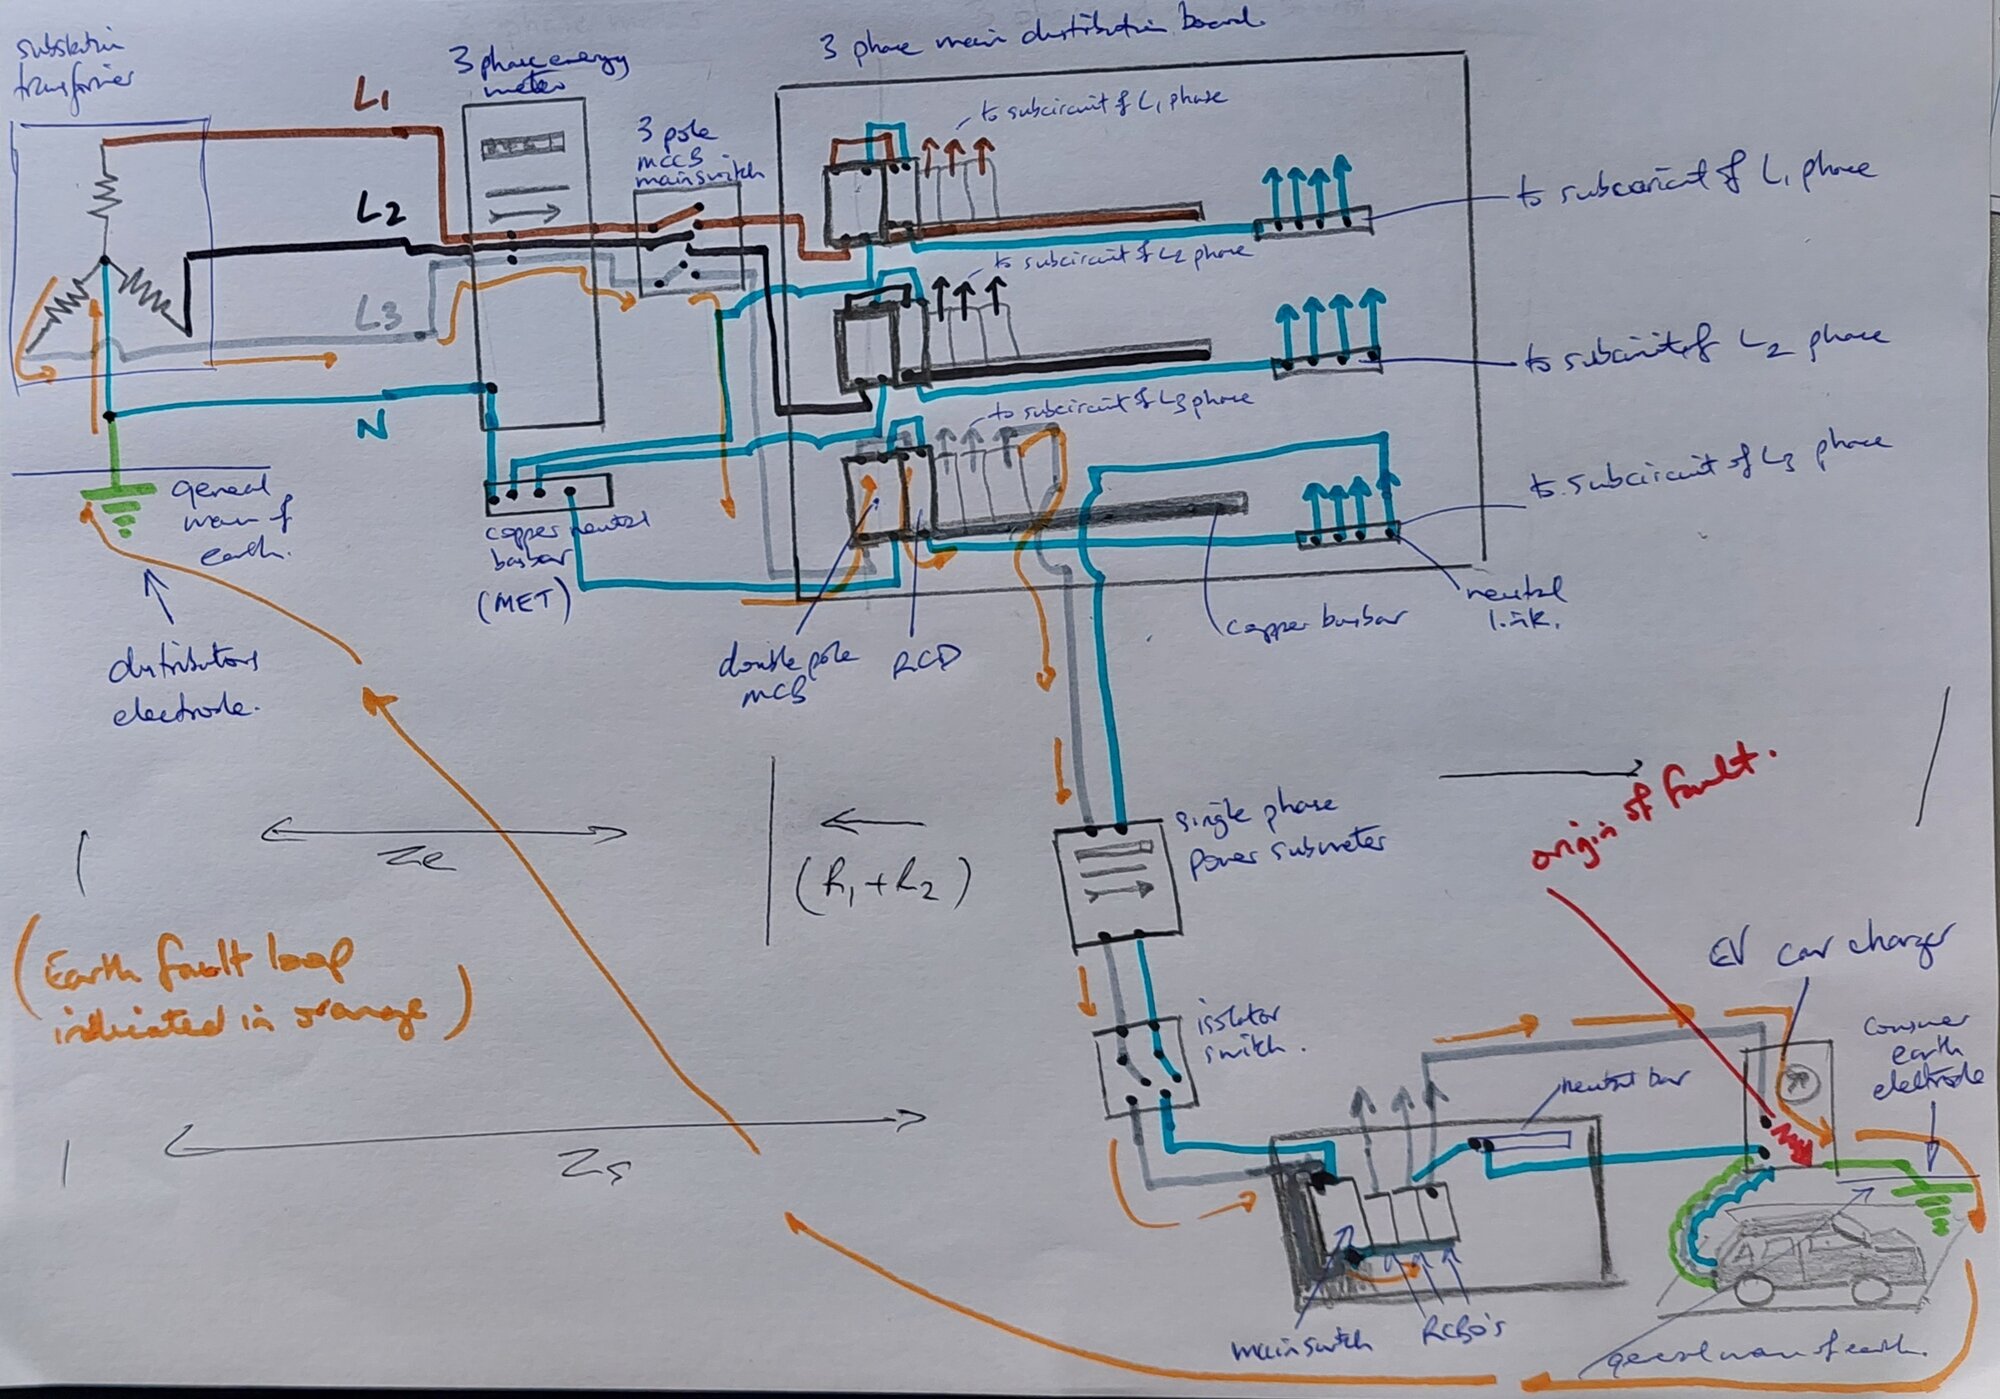 substation
transformer
L1
L2
L3
N
3 phase energy
meter
3 pole
MCCB
mainswitch
3 phase main distribution board
to subcircuit of L1 phase
to subcircuit of L1 phase
to subcircuit of L2 phase
to subcircuit of L2 phase
to subcircuit of L3 phase
to subcircuit of L3 phase
general
mass of
earth.
copper neutral
busbar
(MET)
distributors
electrode.
double pole
MCB
RCD
copper busbar
neutral
link.
Ze
(R1+R2)
Zs
(Earth fault loop
indicated in orange)
single phase
power submeter
origin of fault.
isolator
switch.
EV car charger
consumer
earth
electrode
neutral bar
mainswitch
RCBO's
general mass of earth.